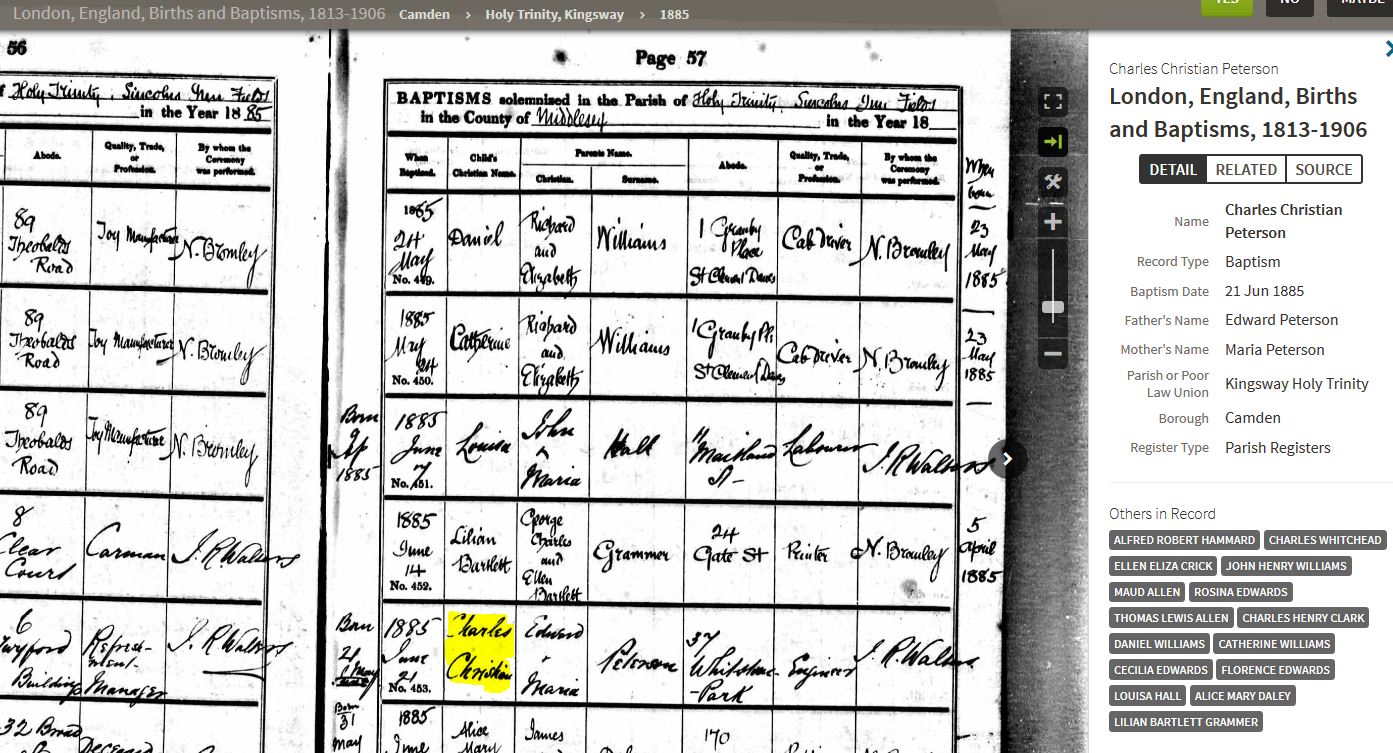 London, England, Births and Baptisms, 1813-1906 Camden > Holy Trinity, Kingsway > 1885
YES NO MAYBE
56
Holy Trinity, Lincolns Inn Fields
in the Year 1885
Abode. Quality, Trade, or Profession. By whom the Ceremony was performed.
89 Theobalds Road Toy Manufacturer N. Bromley
89 Theobalds Road Toy Manufacturer N. Bromley
89 Theobalds Road Toy Manufacturer N. Bromley
8 Clear Court Carman J. R. Walters
6 Buildings Refreshment Manager J. R. Walters
32 Broad Deceased
Page 57
BAPTISMS solemnized in the Parish of Holy Trinity, Lincolns Inn Fields
in the County of Middlesex in the Year 18
When Baptized. Child's Christian Name. Parents Name. Christian. Surname. Abode. Quality, Trade, or Profession. By whom the Ceremony was performed. When born
1885 24 May No. 449. Daniel Richard and Elizabeth Williams 1 Granby Place St Clement Danes Cab Driver N. Bromley 23 May 1885
1885 May 24 No. 450. Catherine Richard and Elizabeth Williams 1 Granby Pl. St Clement Danes Cab Driver N. Bromley 23 May 1885
Born 9 Ap 1885 1885 June 7 No. 451. Louisa John Maria Hall 11 Maitland Labourer J. R. Walters
1885 June 14 No. 452. Lilian Bartlett George Charles and Ellen Bartlett Grammer 24 Gate St Printer N. Bromley 5 April 1885
Born 21 May 1885 June 21 No. 453. Charles Christian Edward Maria Peterson 37 Park Engineer J. R. Walters
Born 31 May 1885 June Alice Mary James 170
Charles Christian Peterson
London, England, Births
and Baptisms, 1813-1906
DETAIL RELATED SOURCE
Name Charles Christian Peterson
Record Type Baptism
Baptism Date 21 Jun 1885
Father's Name Edward Peterson
Mother's Name Maria Peterson
Parish or Poor Law Union Kingsway Holy Trinity
Borough Camden
Register Type Parish Registers
Others in Record
ALFRED ROBERT HAMMARD CHARLES WHITCHEAD
ELLEN ELIZA CRICK JOHN HENRY WILLIAMS
MAUD ALLEN ROSINA EDWARDS
THOMAS LEWIS ALLEN CHARLES HENRY CLARK
DANIEL WILLIAMS CATHERINE WILLIAMS
CECILIA EDWARDS FLORENCE EDWARDS
LOUISA HALL ALICE MARY DALEY
LILIAN BARTLETT GRAMMER